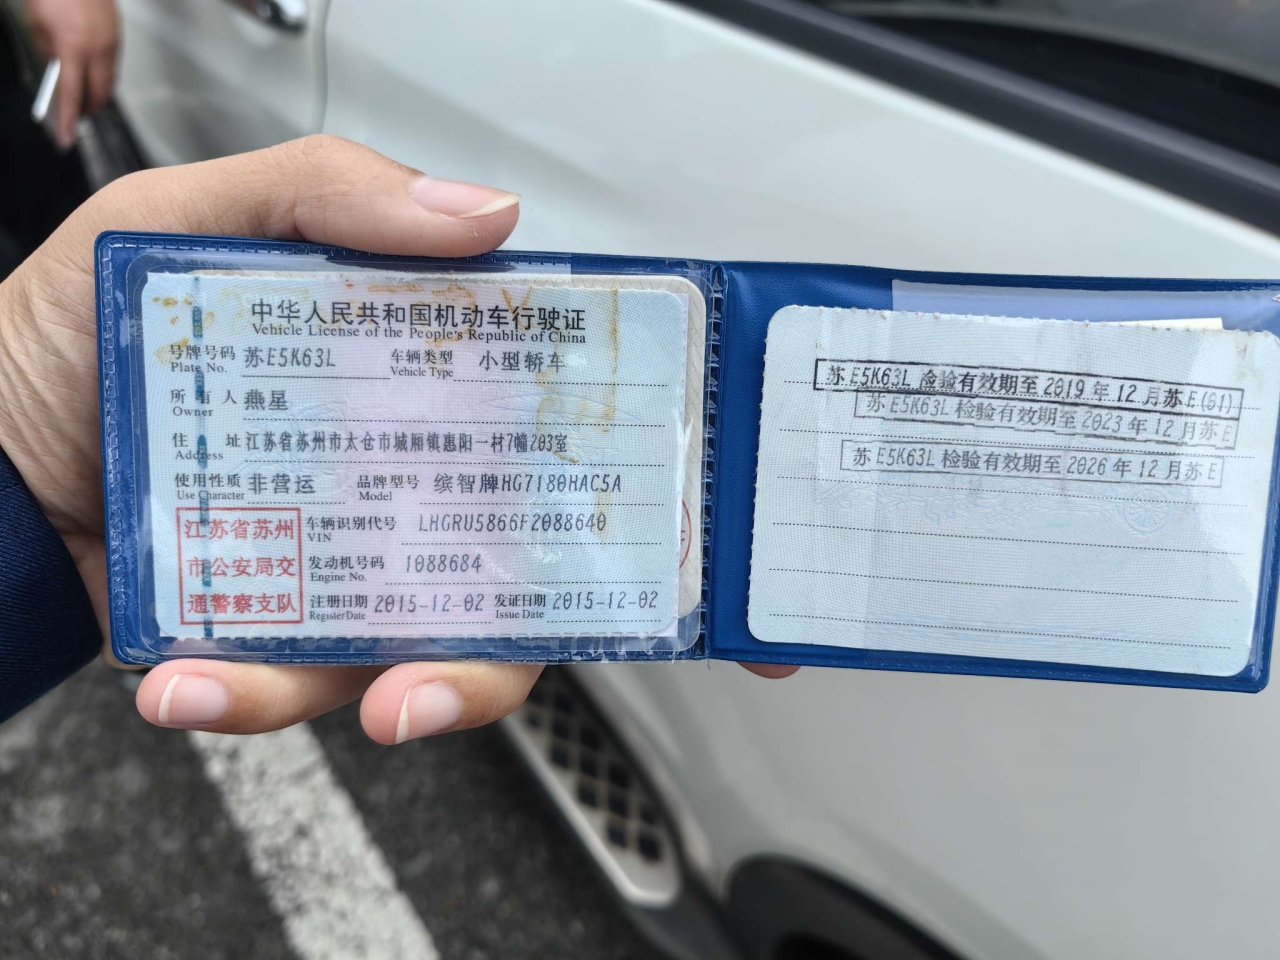 中华人民共和国机动车行驶证
Vehicle License of the People's Republic of China
号牌号码 苏E5K63L 车辆类型 小型轿车
Plate No. Vehicle Type
所有人 燕星
Owner
住址 江苏省苏州市太仓市城厢镇惠阳一村7幢203室
Address
使用性质 非营运 品牌型号 缤智牌HG7180HAC5A
Use Character Model
江苏省苏州
市公安局交
通警察支队
车辆识别代号 LHGRU5866F2088640
VIN
发动机号码 1088684
Engine No.
注册日期 2015-12-02 发证日期 2015-12-02
Register Date Issue Date
苏E5K63L 检验有效期至 2019 年 12 月苏E(01)
苏E5K63L 检验有效期至 2023 年 12 月苏E
苏E5K63L 检验有效期至 2026 年 12 月苏E